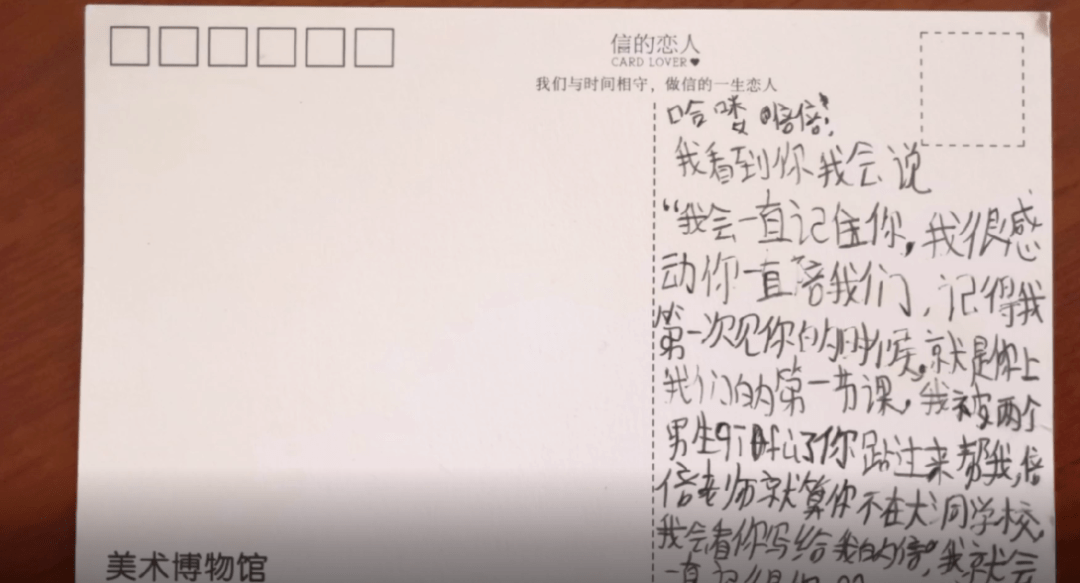 信的恋人
CARD LOVER♥
我们与时间相守，做信的一生恋人
哈喽 倍倍！
我看到你我会说
“我会一直记住你，我很感
动你一直陪我们，记得我
第一次见你的时候，就是你上
我们的第一节课，我被两个
男生 了你 过来帮我，倍
倍老师就算你不在大同学校，
我会看你写给我的信”我就会
一直记得你
美术博物馆